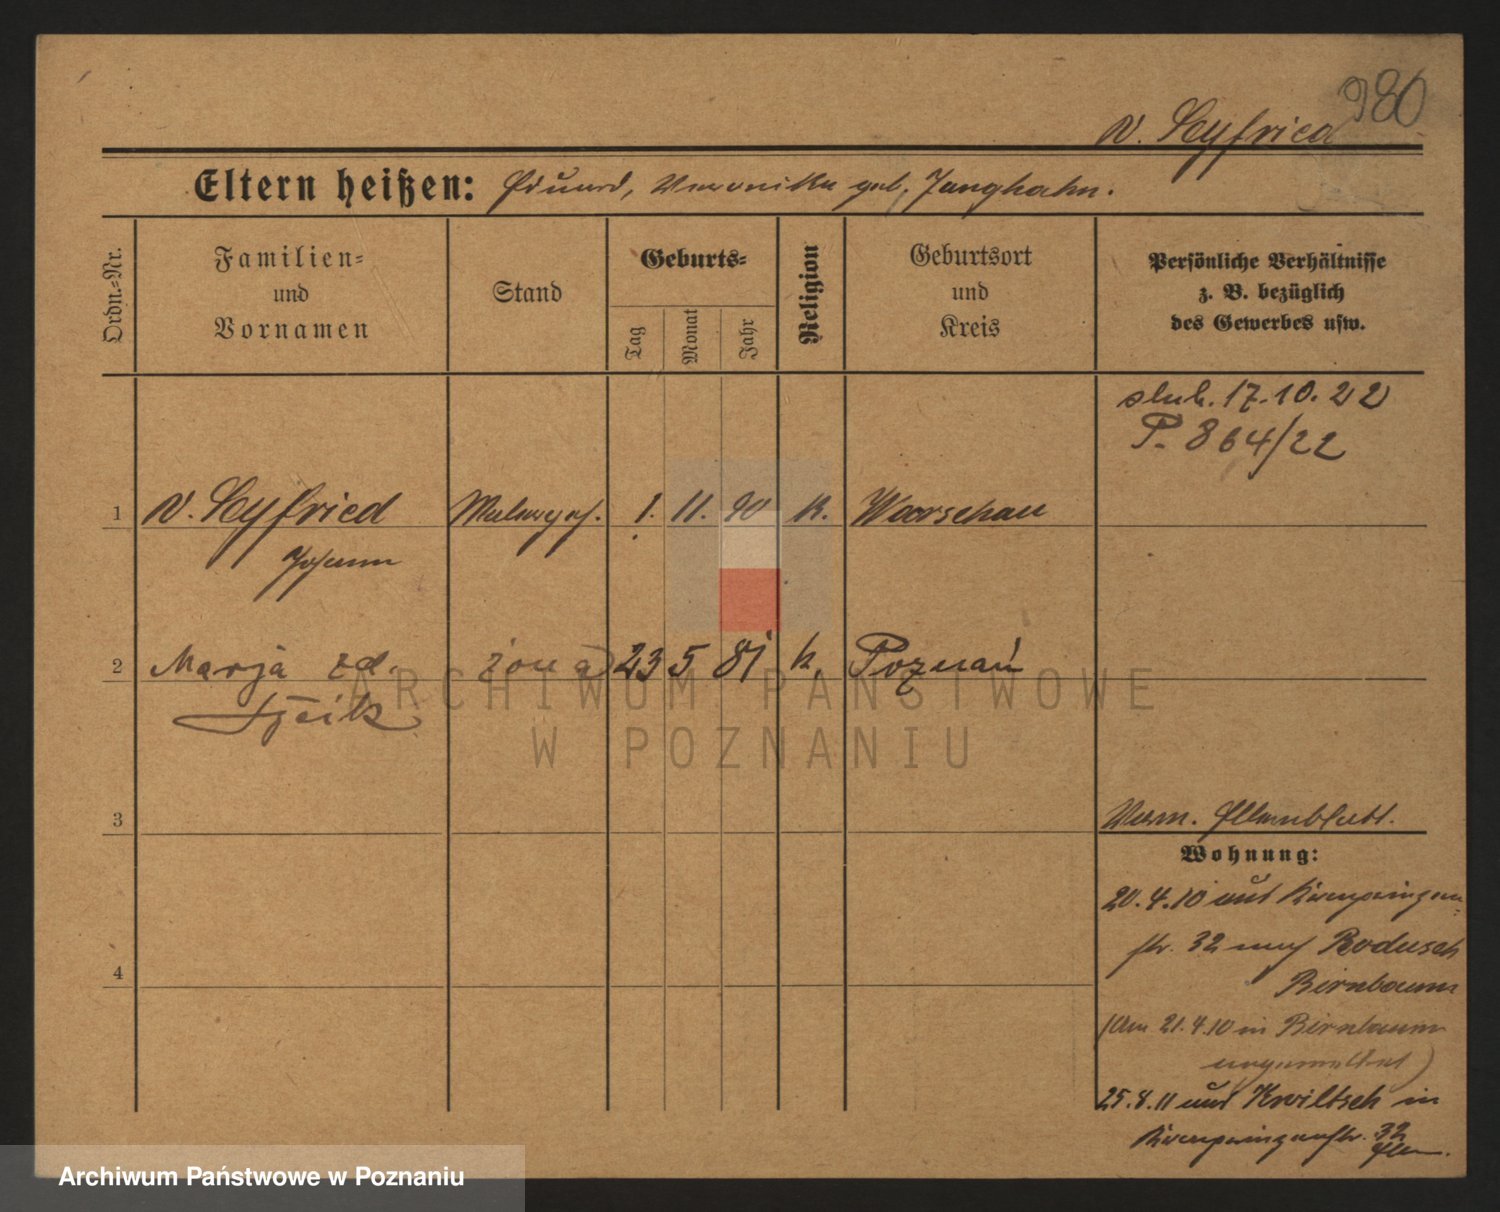 980
v. Seyfried
Eltern heißen: Eduard, Veronika geb. Junghahn.
Ordn.-Nr.
Familien-
und
Vornamen
Stand
Geburts-
Tag
Monat
Jahr
Religion
Geburtsort
und
Kreis
Persönliche Verhältnisse
z. B. bezüglich
des Gewerbes usw.
ślub. 17.10.22
P. 864/22
1 v. Seyfried Malergeh. 1. 11. 90 k. Warschau
Johann
2 Marja zd. żona 23 5 81 k. Poznań
3
Verm. Elternblatt.
Wohnung:
20.4.10 aus Kronprinzen-
str. 32 nach Radusch
4
Birnbaum
(Am 21.4.10 in Birnbaum
angemeldet)
25.8.11 aus Kwiltsch in
Kronprinzenstr. 32
ARCHIWUM PAŃSTWOWE
W POZNANIU
Archiwum Państwowe w Poznaniu